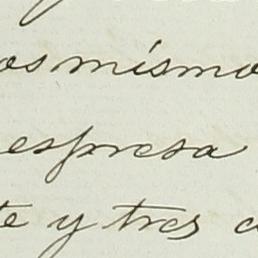 os mismo
espresa
te y tres